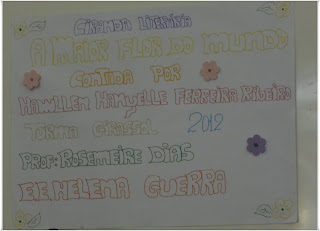 CIRANDA LITERÁRIA
A MAIOR FLOR DO MUNDO
CONTIDA POR
HAWLLEM HANYELLE FERREIRA RIBEIRO
TURMA GIRASSOL 2012
PROF: ROSEMEIRE DIAS
E.E HELENA GUERRA